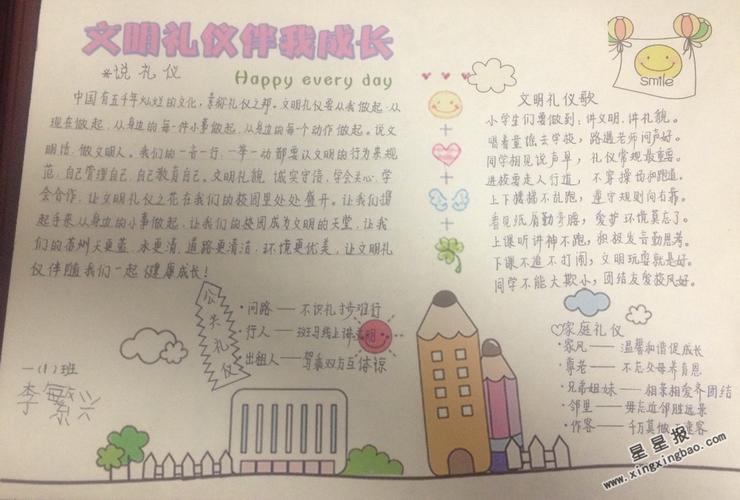 文明礼仪伴我成长
Happy every day
说礼仪
中国有五千年灿烂的文化,素称礼仪之邦。文明礼仪要从我做起,从
现在做起,从身边的每一件小事做起,从身边的每个动作做起。说文
明话,做文明人。我们的一言一行,一举一动都要以文明的行为来规
范,自己管理自己,自己教育自己。文明礼貌,诚实守信,学会关心,学
会合作,让文明礼仪之花在我们的校园里处处盛开。让我们携
起手来从身边的小事做起,让我们的校园成为文明的天堂,让我
们的苏州天更蓝,水更清,道路更清洁,环境更优美,让文明礼
仪伴随我们一起健康成长!
公共礼仪
问路——不识礼寸步难行
行人——斑马线上讲文明
出租人——驾乘双方互体谅
一(1)班
李繁兴
smile
文明礼仪歌
小学生们要做到:讲文明,讲礼貌。
唱着童谣去学校,路遇老师问声好。
同学相见说声早,礼仪常规最重要。
进校要走人行道,不穿操场和跑道。
上下楼梯不乱跑,遵守规则向右靠。
看见纸屑勤弯腰,爱护环境莫忘了。
上课听讲神不跑,积极发言勤思考。
下课不追不打闹,文明玩耍就是好。
同学不能大欺小,团结友爱校风好。
家庭礼仪
家风——温馨和谐促成长
尊老——不忘父母养育恩
兄弟姐妹——相亲相爱齐团结
邻里——毋忘近邻胜远亲
作客——千万莫做
星星报
www.xingxingbao.com